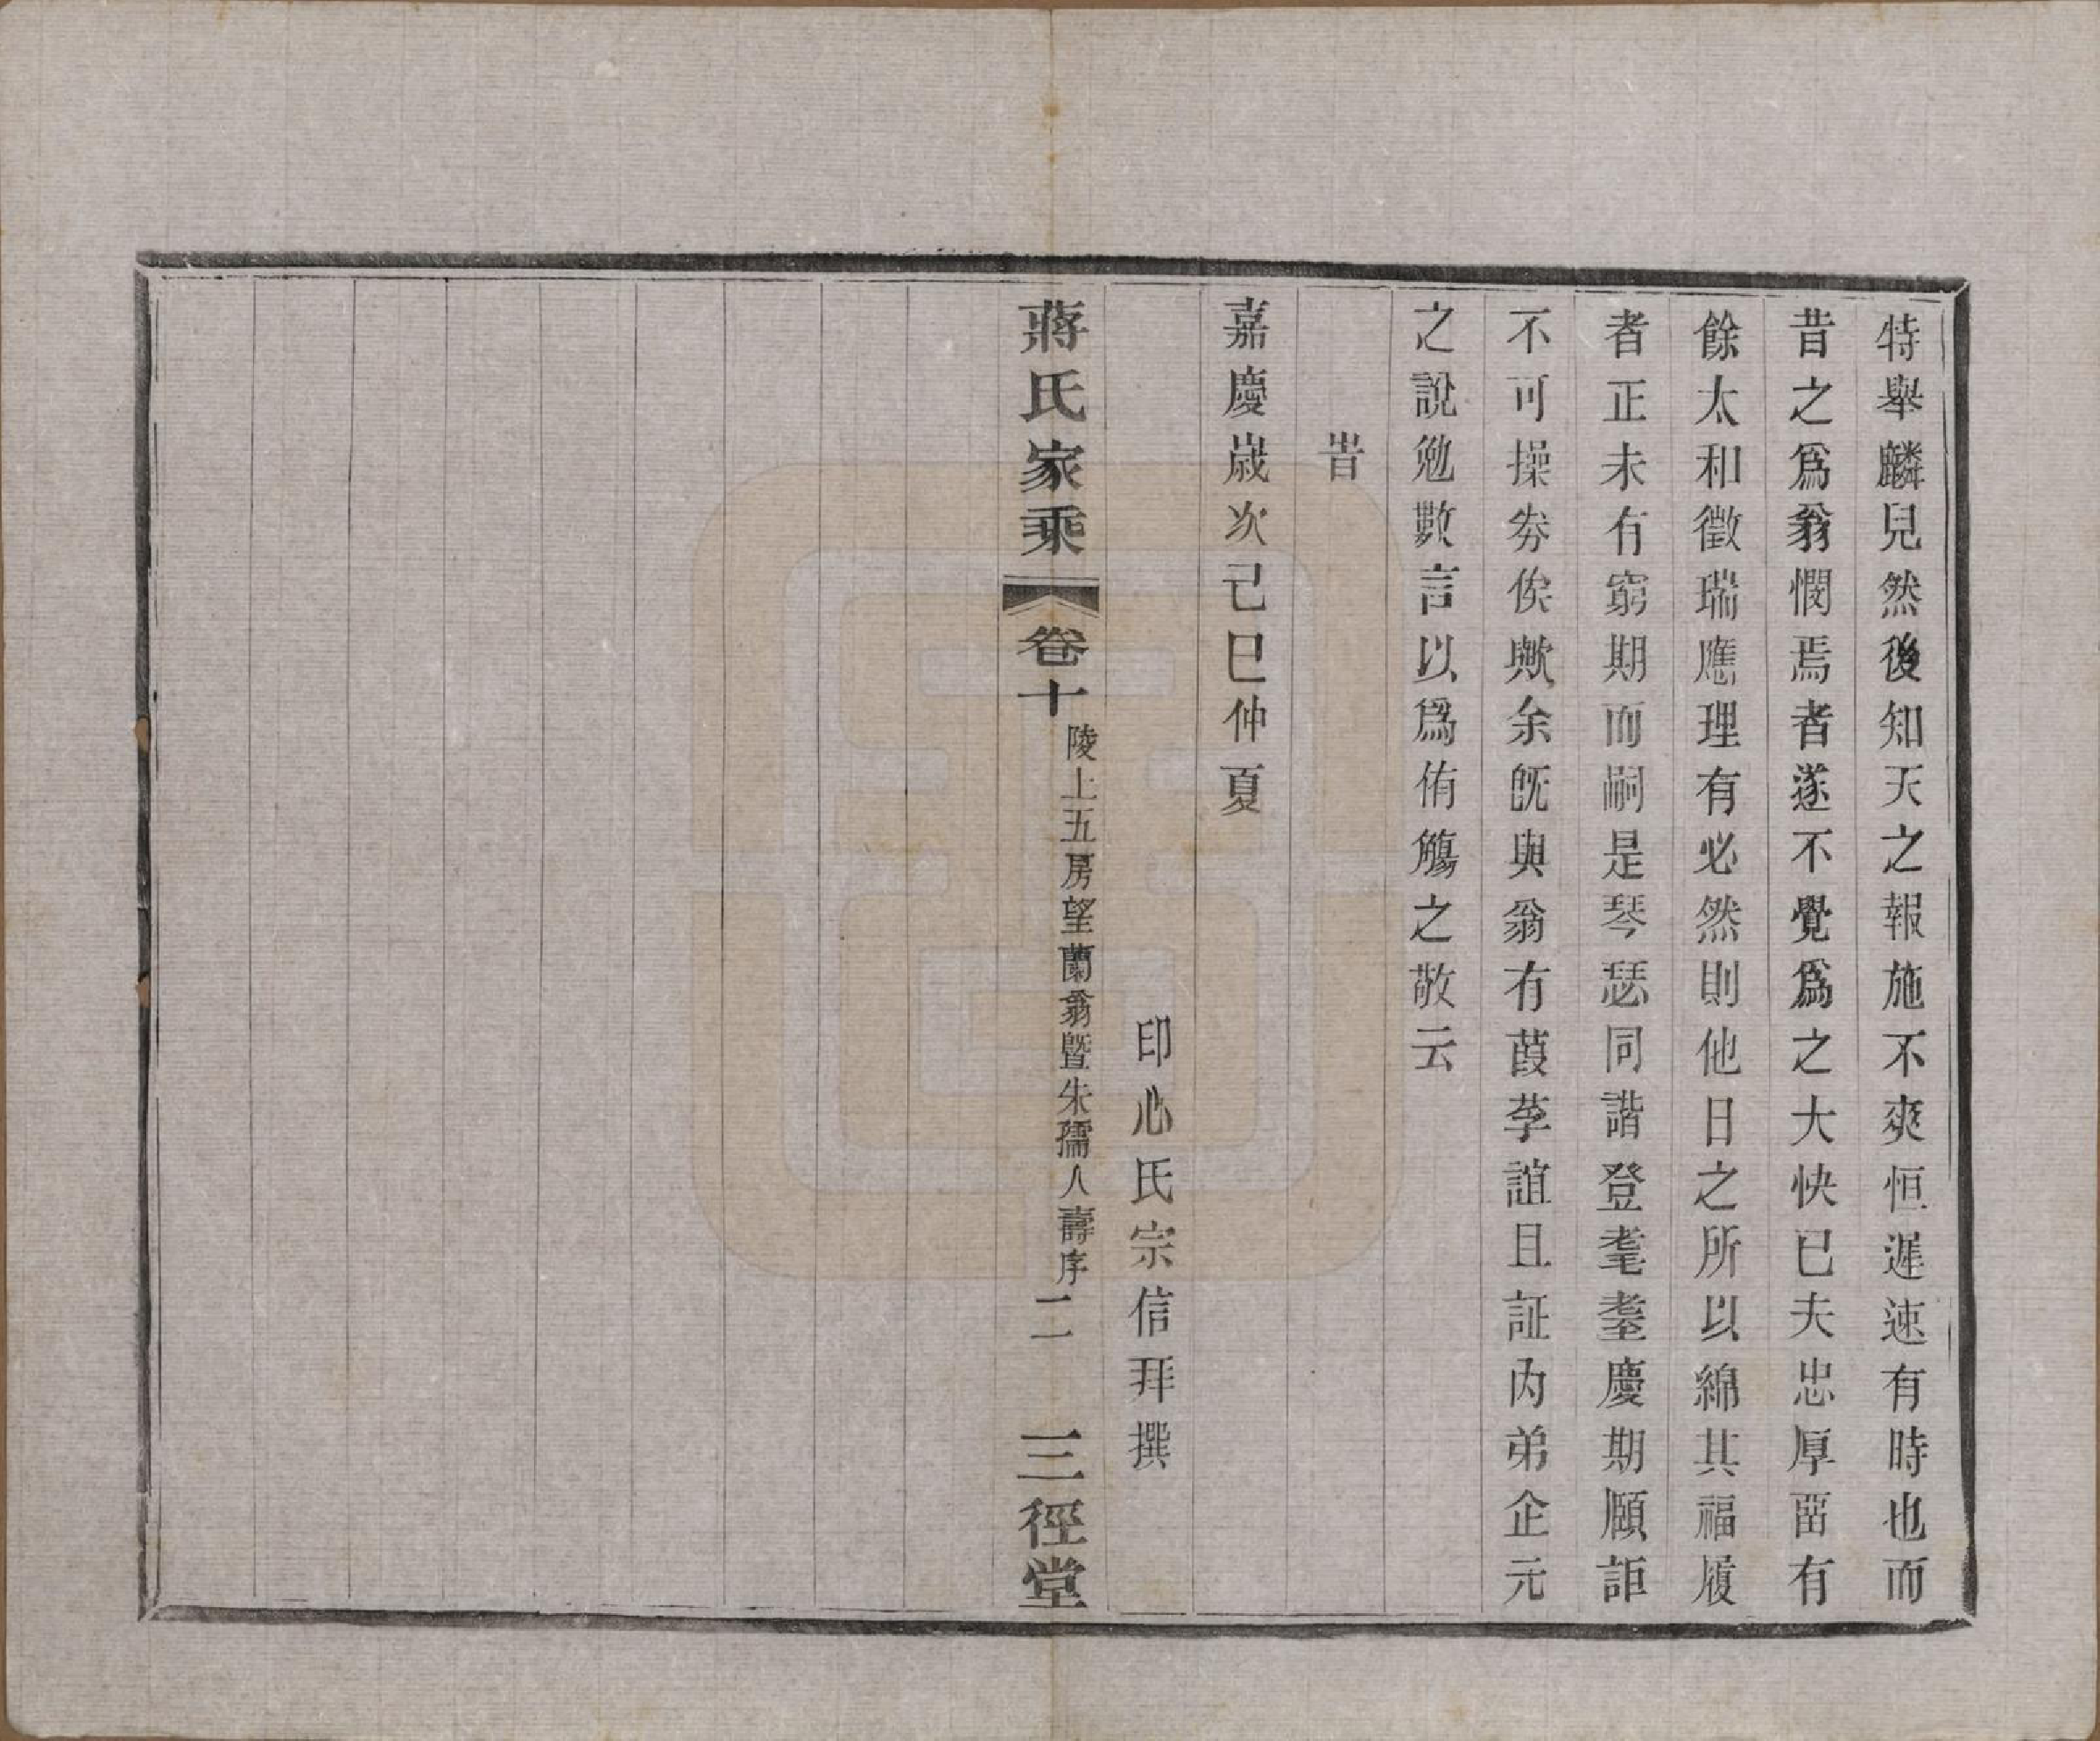 特舉麟兒然後知天之報施不爽恒遲速有時也而
昔之爲翁憫焉者遂不覺爲之大快已夫忠厚畱有
餘太和徵瑞應理有必然則他日之所以綿其福履
者正未有窮期而嗣是琴瑟同諧登耄耋慶期頤詎
不可操劵俟歟余旣與翁有葭莩誼且証內弟企元
之說勉數言以爲侑觴之敬云
旹
嘉慶歲次己巳仲夏
印心氏宗信拜撰
蔣氏家乘 卷十 陵上五房望蘭翁曁朱孺人壽序 二 三徑堂